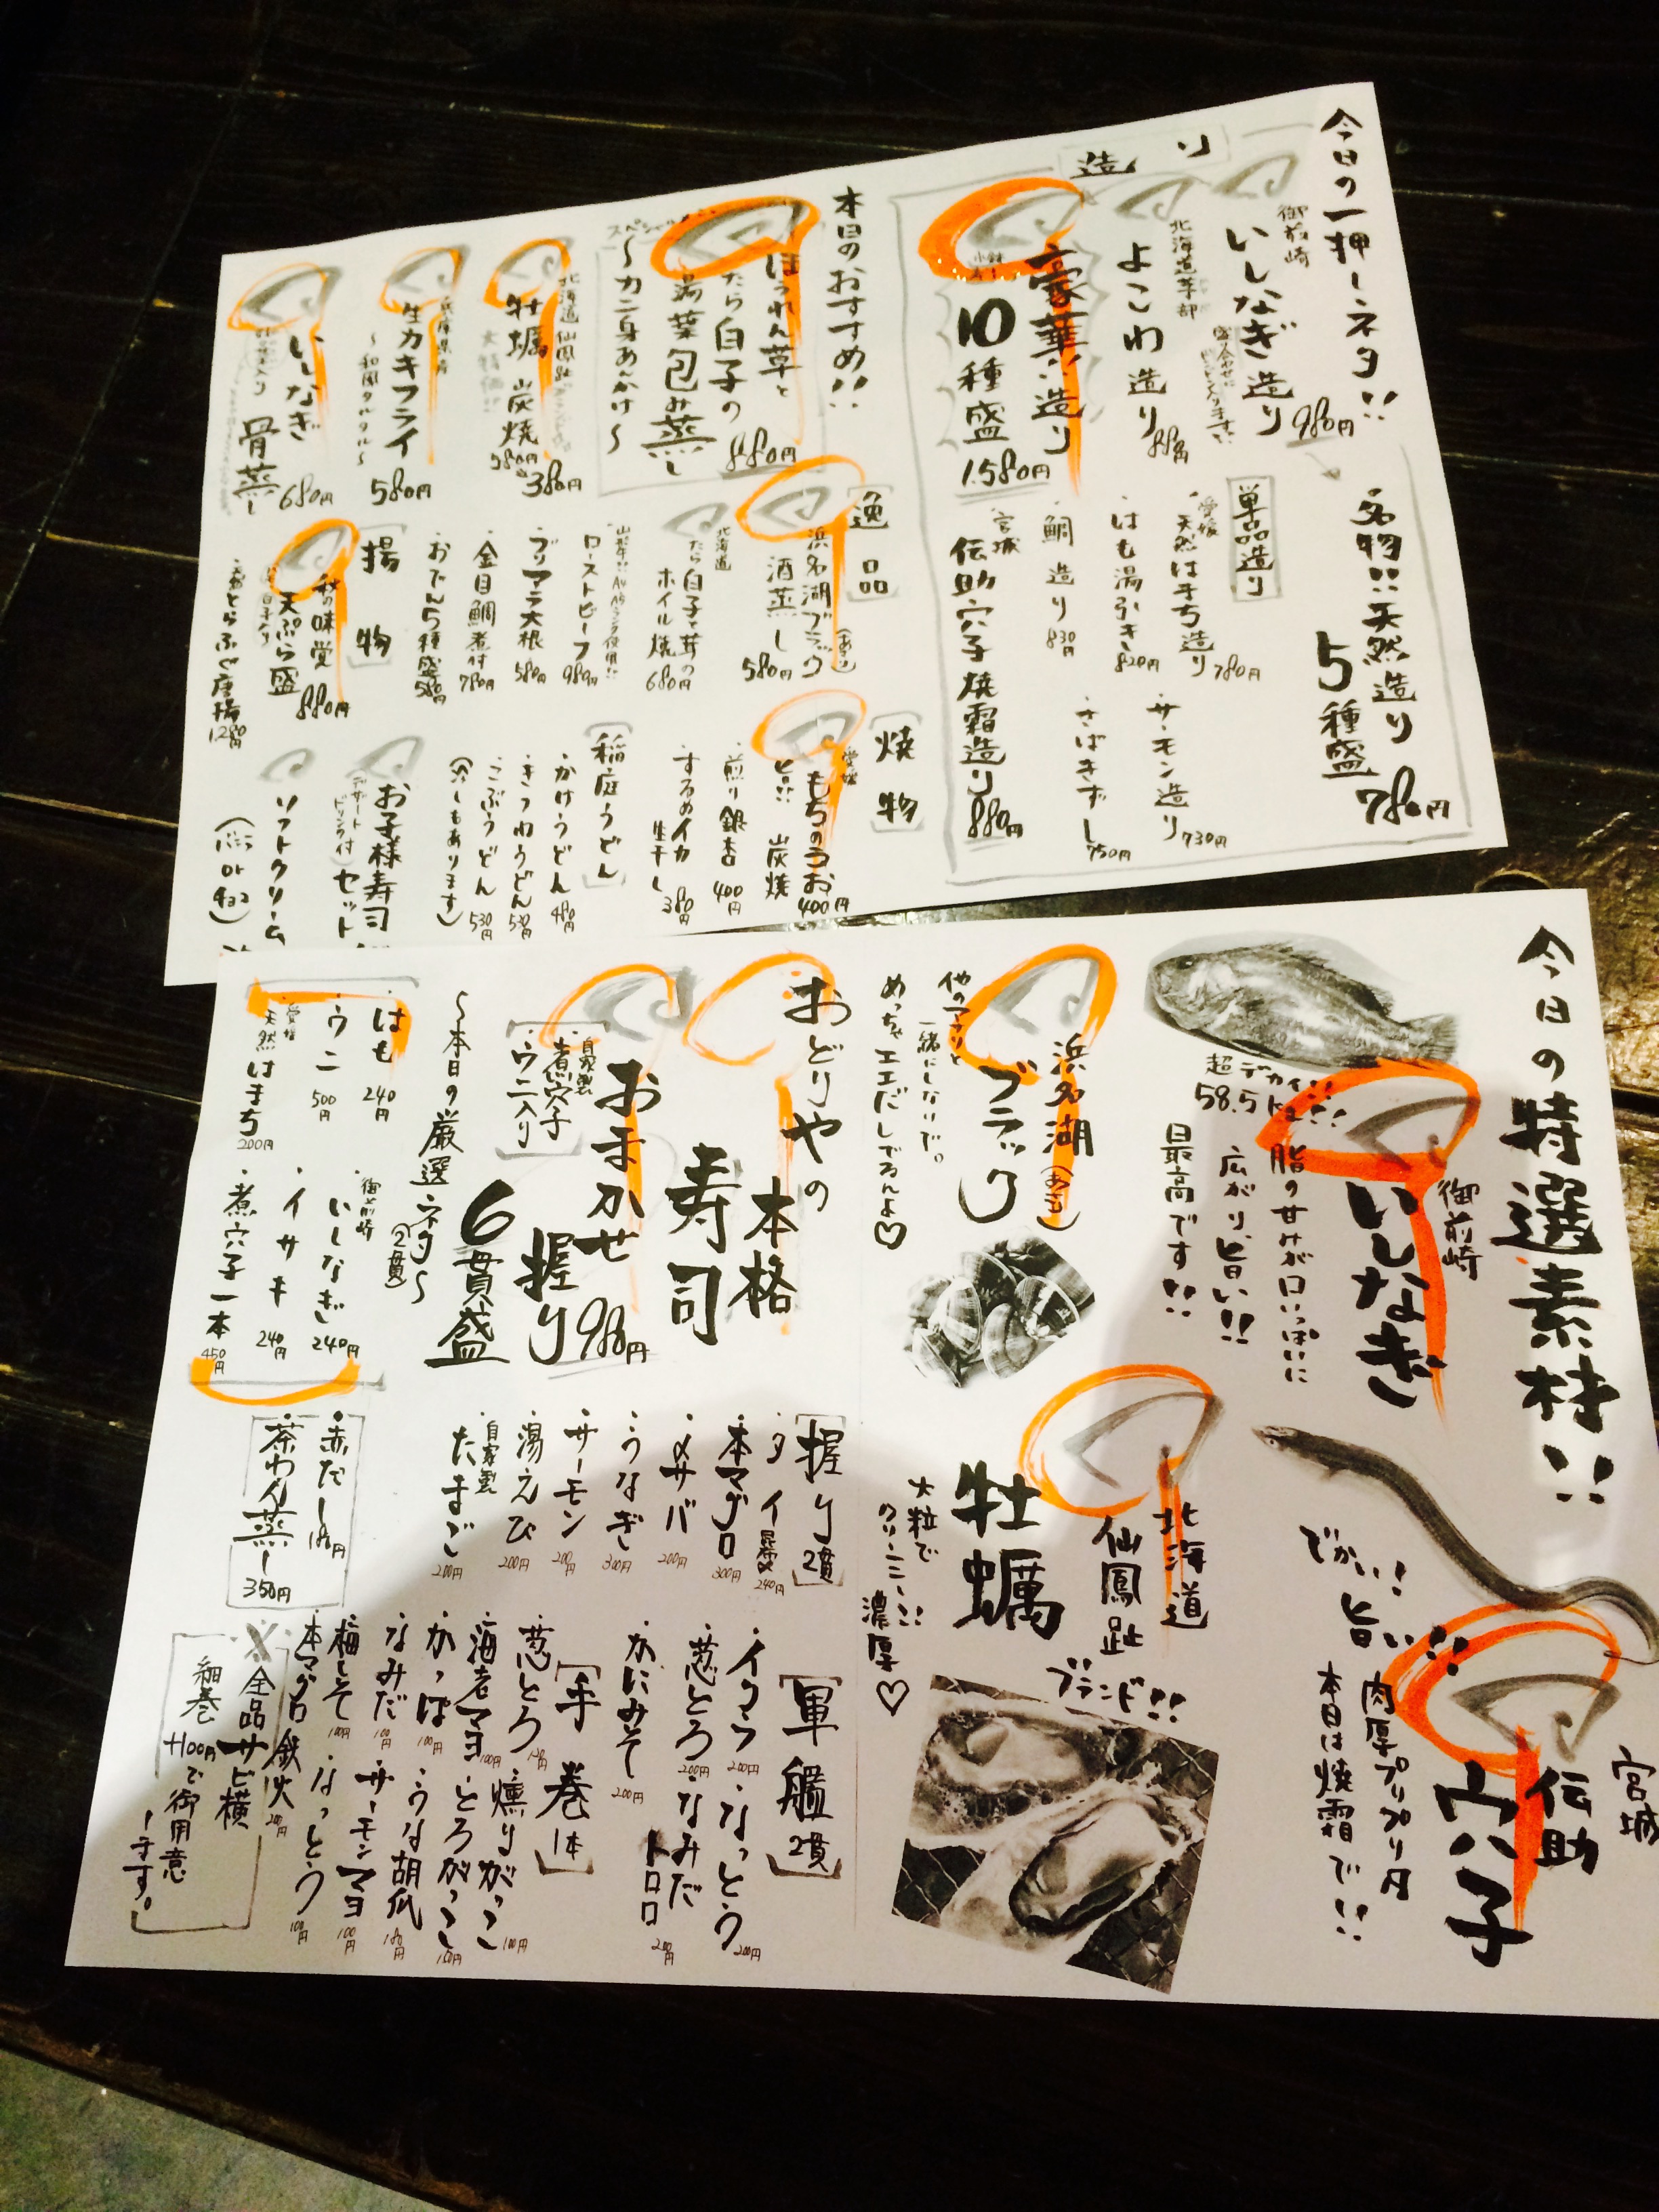 今日の一押しネタ!!
造り
御前崎
いしなぎ造り
980円
北海道
よこわ造り
豪華造り
10種盛
1580円
名物!!天然造り
5種盛
780円
単品造り
愛媛
天然はまち造り
780円
はも湯引き
820円
鯛造り
830円
宮城
伝助穴子焼霜造り
880円
サーモン造り
730円
きずし
750円
本日のおすすめ!!
ほうれん草と
たら白子の
湯葉包み蒸し
〜カニ身あんかけ〜
880円
北海道 仙鳳趾
牡蠣 炭焼
380円
兵庫県産
生カキフライ
〜和風タルタル〜
580円
いしなぎ
骨蒸し
680円
逸品
浜名湖ブラック(あさり)
酒蒸し
580円
北海道
たら白子と茸の
ホイル焼
680円
ローストビーフ
980円
ブリアラ大根
580円
金目鯛煮付
780円
おでん5種盛
580円
揚物
秋の味覚
天ぷら盛
880円
焼物
愛媛
もちのうお
400円
旨!! 炭焼
煎り銀杏
400円
するめイカ
生干し
380円
稲庭うどん
かけうどん
480円
きつねうどん
530円
こぶうどん
530円
(冷しもあります)
お子様寿司
セット
デザート
ドリンク付
ソフトクリーム
(バニラ or チョコ)
今日の特選素材!!
超デカイ!!
58.5kg!!
御前崎
いしなぎ
脂の甘味が口いっぱいに
広がり、旨い!!
最高です!!
宮城
伝助
穴子
でかい!
旨い!!
肉厚プリプリ
本日は焼霜で!!
浜名湖
ブラック
(あさり)
他のアサリと
一緒にしないで。
めっちゃエエだしでるんよ♡
北海道
仙鳳趾
ブランド!!
牡蠣
大粒で
クリーミー!!
濃厚♡
おどりやの
本格
寿司
おまかせ
握り
6貫盛
980円
自家製
煮穴子
ウニ入り
〜本日の厳選ネタ〜
(2貫)
はも
240円
ウニ
500円
愛媛
天然はまち
200円
御前崎
いしなぎ
240円
イサキ
240円
煮穴子一本
450円
握り 2貫
タイ 昆布〆
240円
本マグロ
300円
〆サバ
200円
うなぎ
300円
サーモン
200円
湯えび
200円
自家製
たまご
200円
赤だし
茶わん蒸し
350円
軍艦 2貫
イクラ
200円
なっとう
200円
葱とろ
200円
なみだ
トロロ
200円
かにみそ
200円
手巻 1本
葱とろ
燻りがっこ
100円
海老マヨ
100円
とろがっこ
かっぱ
100円
うな胡瓜
なみだ
100円
サーモンマヨ
100円
梅しそ
100円
なっとう
100円
本マグロ鉄火
※全品サビ横
細巻 +100円で御用意
します。